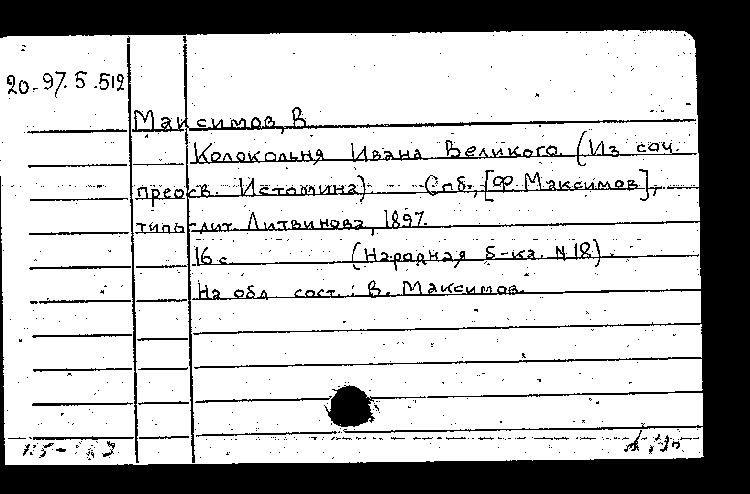 20-97.5.512
Максимов, В
Колокольня Ивана Великого. (Из соч.
преосв. Истомина) Спб., [Ф. Максимов],
типо-лит. Литвинова, 1897.
16 с (Народная б-ка. N 18).
На обл сост.: В. Максимов.